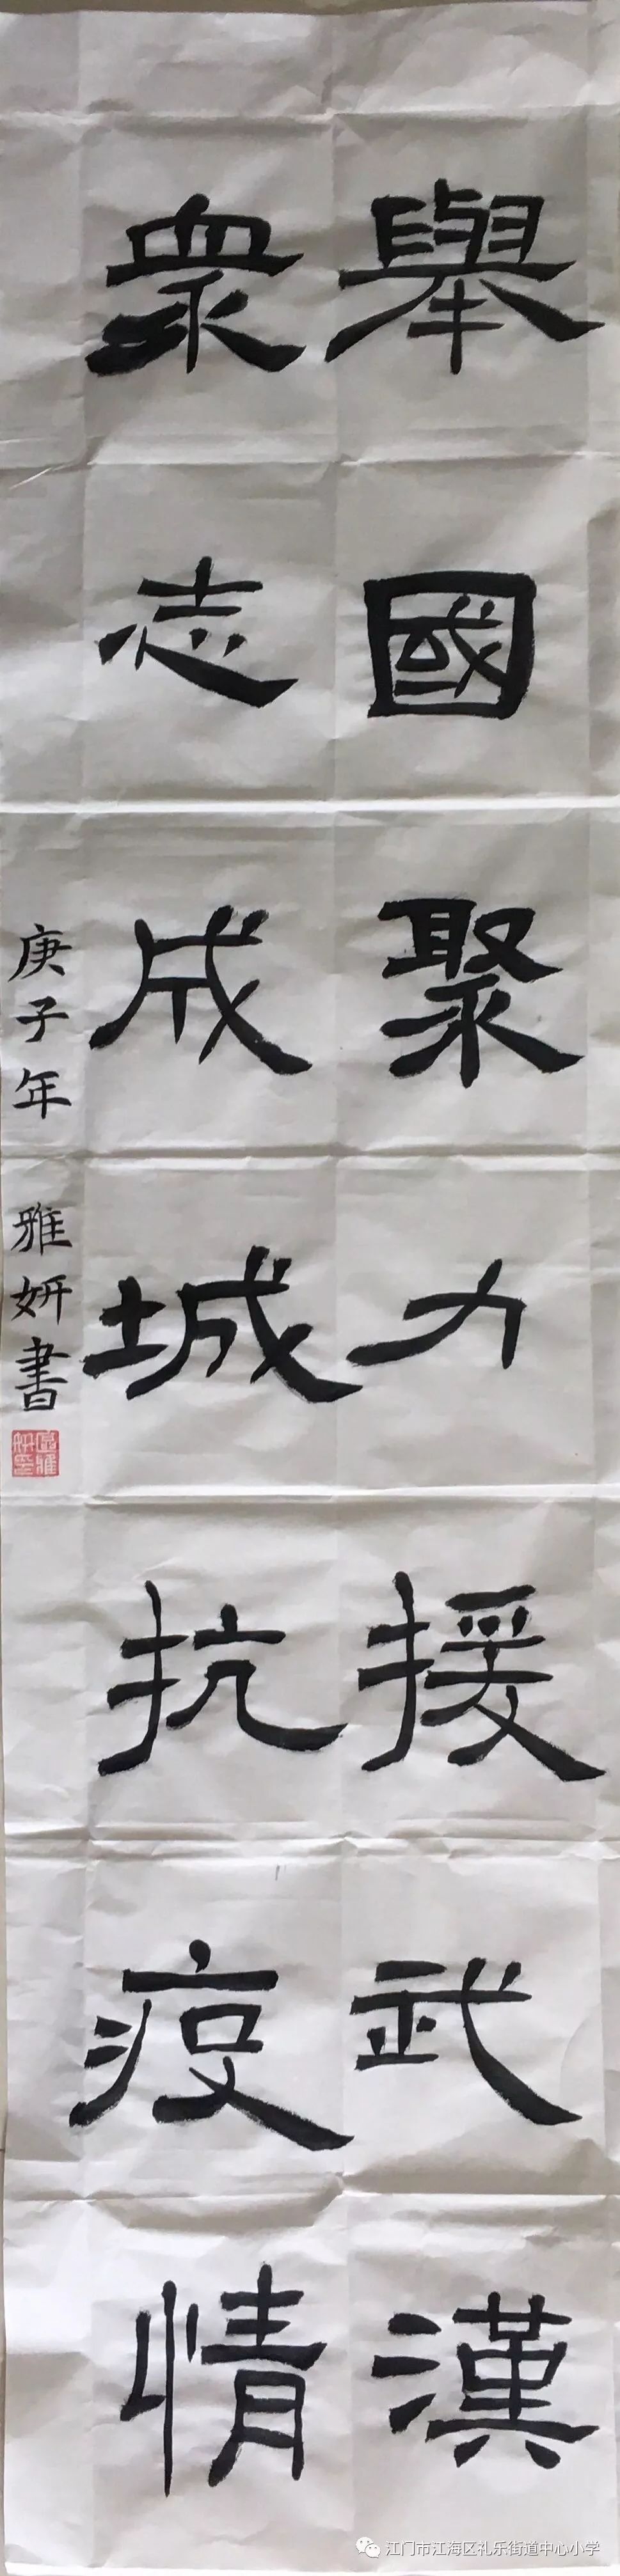 舉國聚力援武漢
衆志成城抗疫情
庚子年 雅妍書
區雅妍印
江门市江海区礼乐街道中心小学